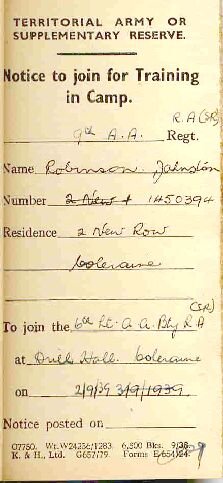 TERRITORIAL ARMY OR
SUPPLEMENTARY RESERVE.
Notice to join for Training
in Camp.
R.A (SR)
9th A.A. Regt.
Name Robinson Johnston
Number 2 New 1450394
Residence 2 New Row
Coleraine
(SR)
To join the 6th Lt. A A Bty R A
at Drill Hall Coleraine
on 2/9/39 3/9/1939
Notice posted on
07750. Wt. W24236/1283. 6,500 Bks. 9/38.
K. & H., Ltd. G657/79. Forms E/654/24.